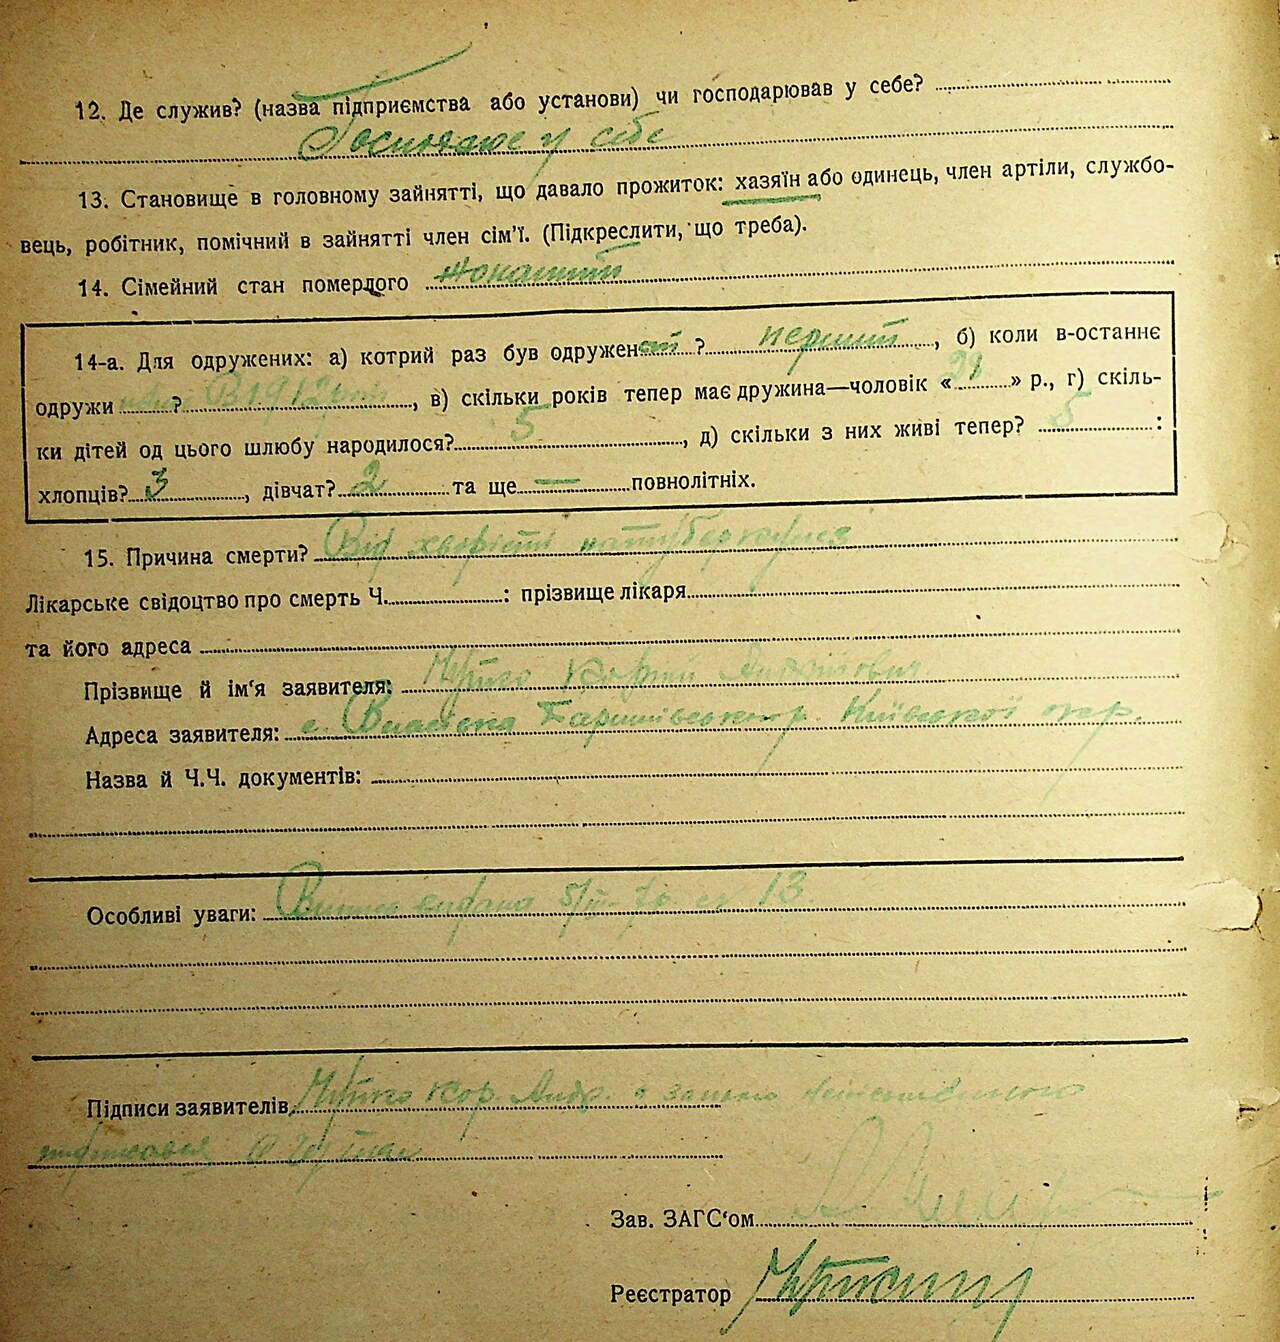 12. Де служив? (назва підприємства або установи) чи господарював у себе?
у себе
13. Становище в головному зайнятті, що давало прожиток: хазяїн або одинець, член артіли, службо-
вець, робітник, помічний в зайнятті член сім'ї. (Підкреслити, що треба).
14. Сімейний стан померлого
14-а. Для одружених: а) котрий раз був одружен ий ? перший, б) коли в-останнє
одружи ? В 1912, в) скільки років тепер має дружина—чоловік « » р., г) скіль-
ки дітей од цього шлюбу народилося? 5, д) скільки з них живі тепер? 5 :
хлопців? 3, дівчат? 2 та ще — повнолітніх.
15. Причина смерти? Від
Лікарське свідоцтво про смерть Ч. : прізвище лікаря
та його адреса
Прізвище й ім'я заявителя:
Адреса заявителя: с. Власівка Баришівського р. Київської окр.
Назва й Ч.Ч. документів:
Особливі уваги: 13
Підписи заявителів
Зав. ЗАГС'ом
Реєстратор